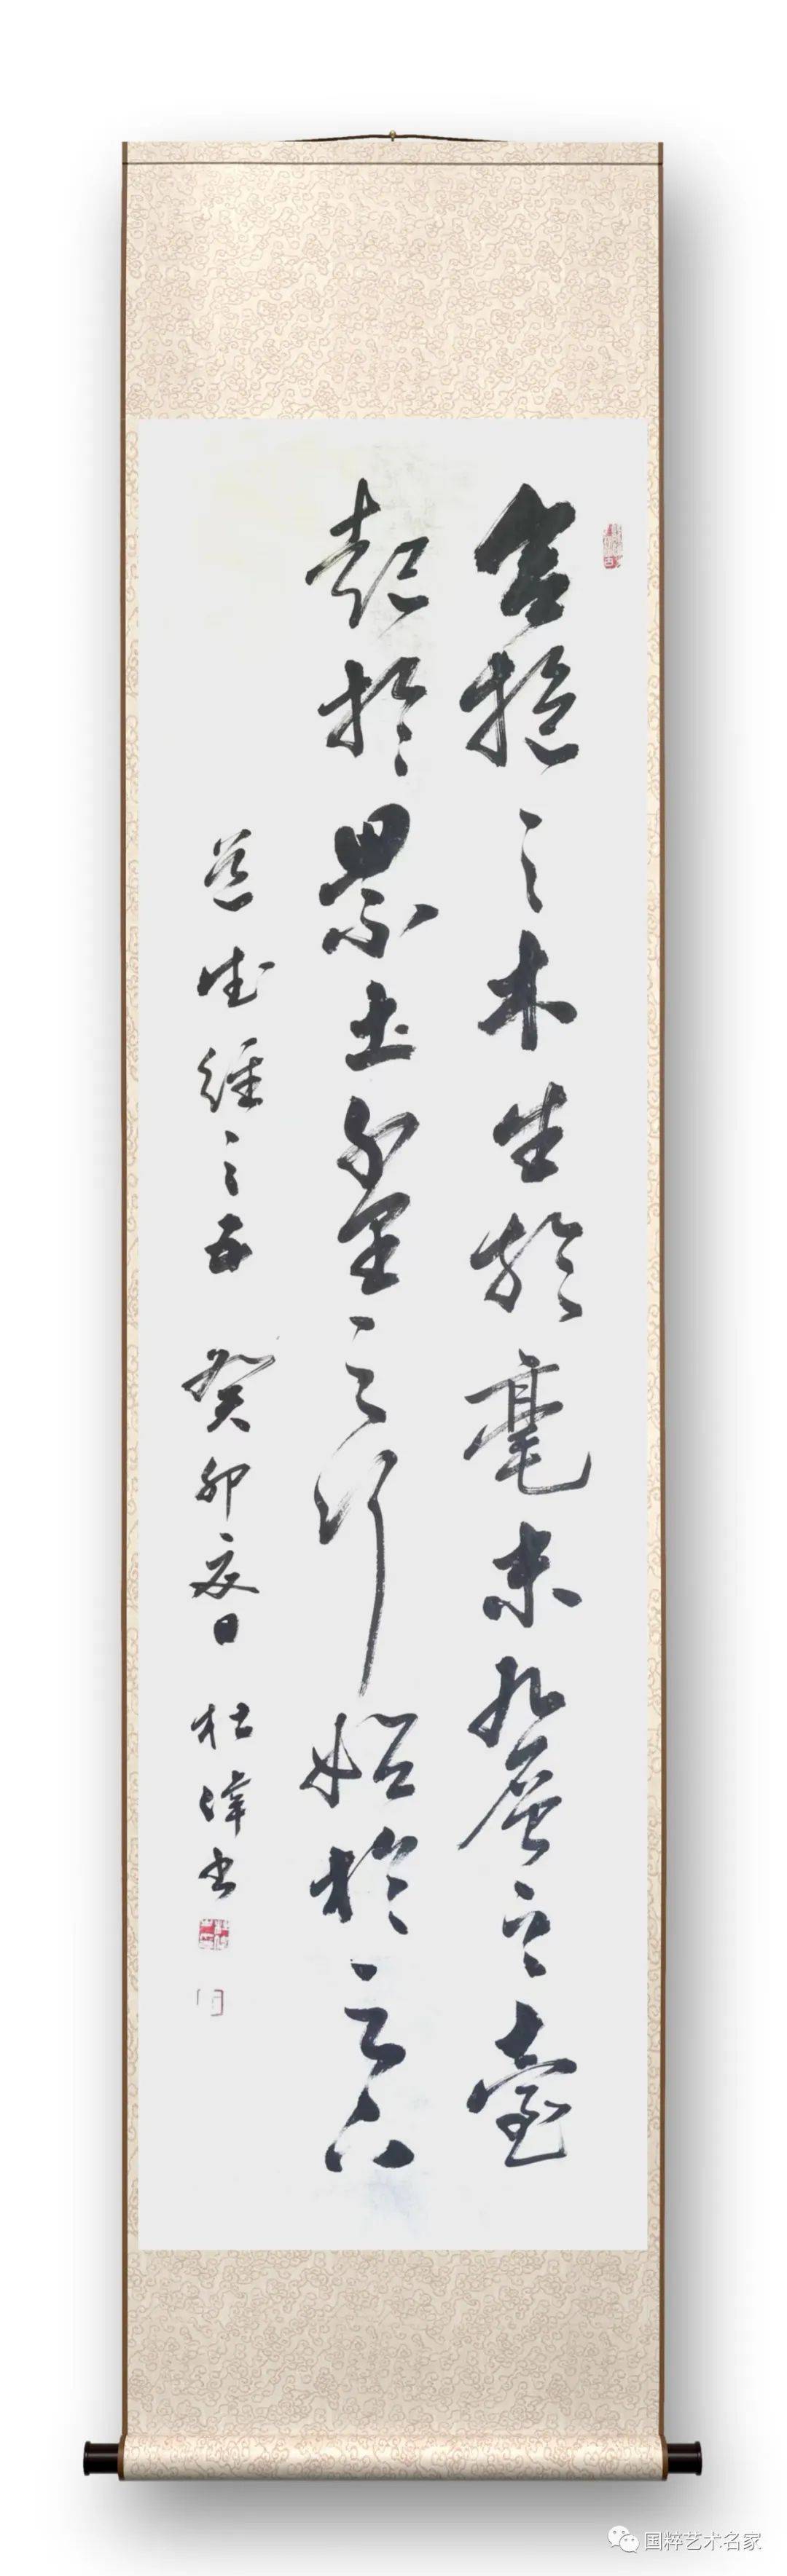 合抱之木生於毫末九層之臺
起於累土千里之行始於足下
道德經之 癸卯夏日 杜 書
国粹艺术名家